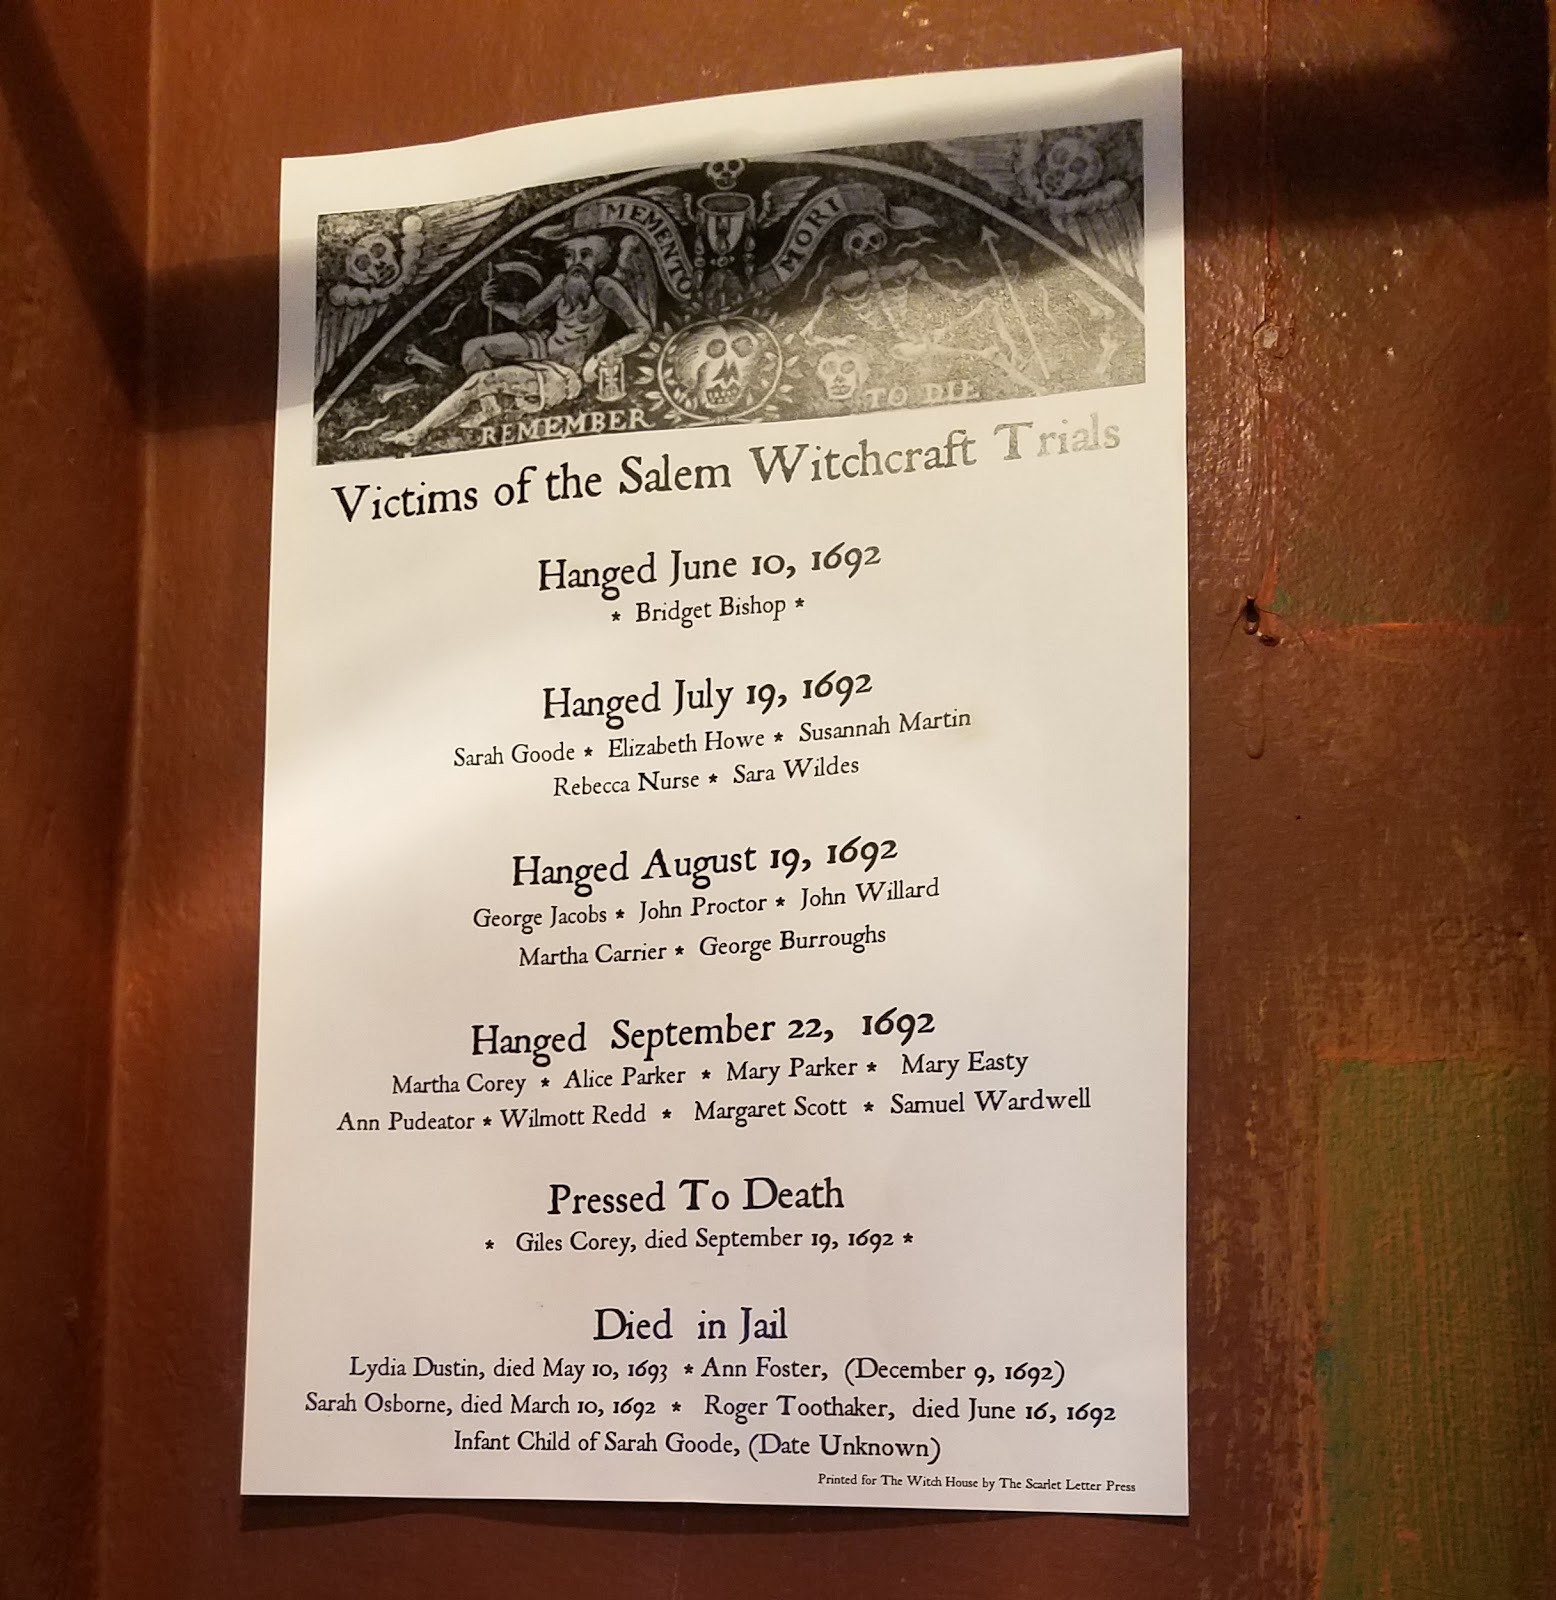 MEMENTO MORI
REMEMBER TO DIE
Victims of the Salem Witchcraft Trials
Hanged June 10, 1692
* Bridget Bishop *
Hanged July 19, 1692
Sarah Goode * Elizabeth Howe * Susannah Martin
Rebecca Nurse * Sara Wildes
Hanged August 19, 1692
George Jacobs * John Proctor * John Willard
Martha Carrier * George Burroughs
Hanged September 22, 1692
Martha Corey * Alice Parker * Mary Parker * Mary Easty
Ann Pudeator * Wilmott Redd * Margaret Scott * Samuel Wardwell
Pressed To Death
* Giles Corey, died September 19, 1692 *
Died in Jail
Lydia Dustin, died May 10, 1693 * Ann Foster, (December 9, 1692)
Sarah Osborne, died March 10, 1692 * Roger Toothaker, died June 16, 1692
Infant Child of Sarah Goode, (Date Unknown)
Printed for The Witch House by The Scarlet Letter Press